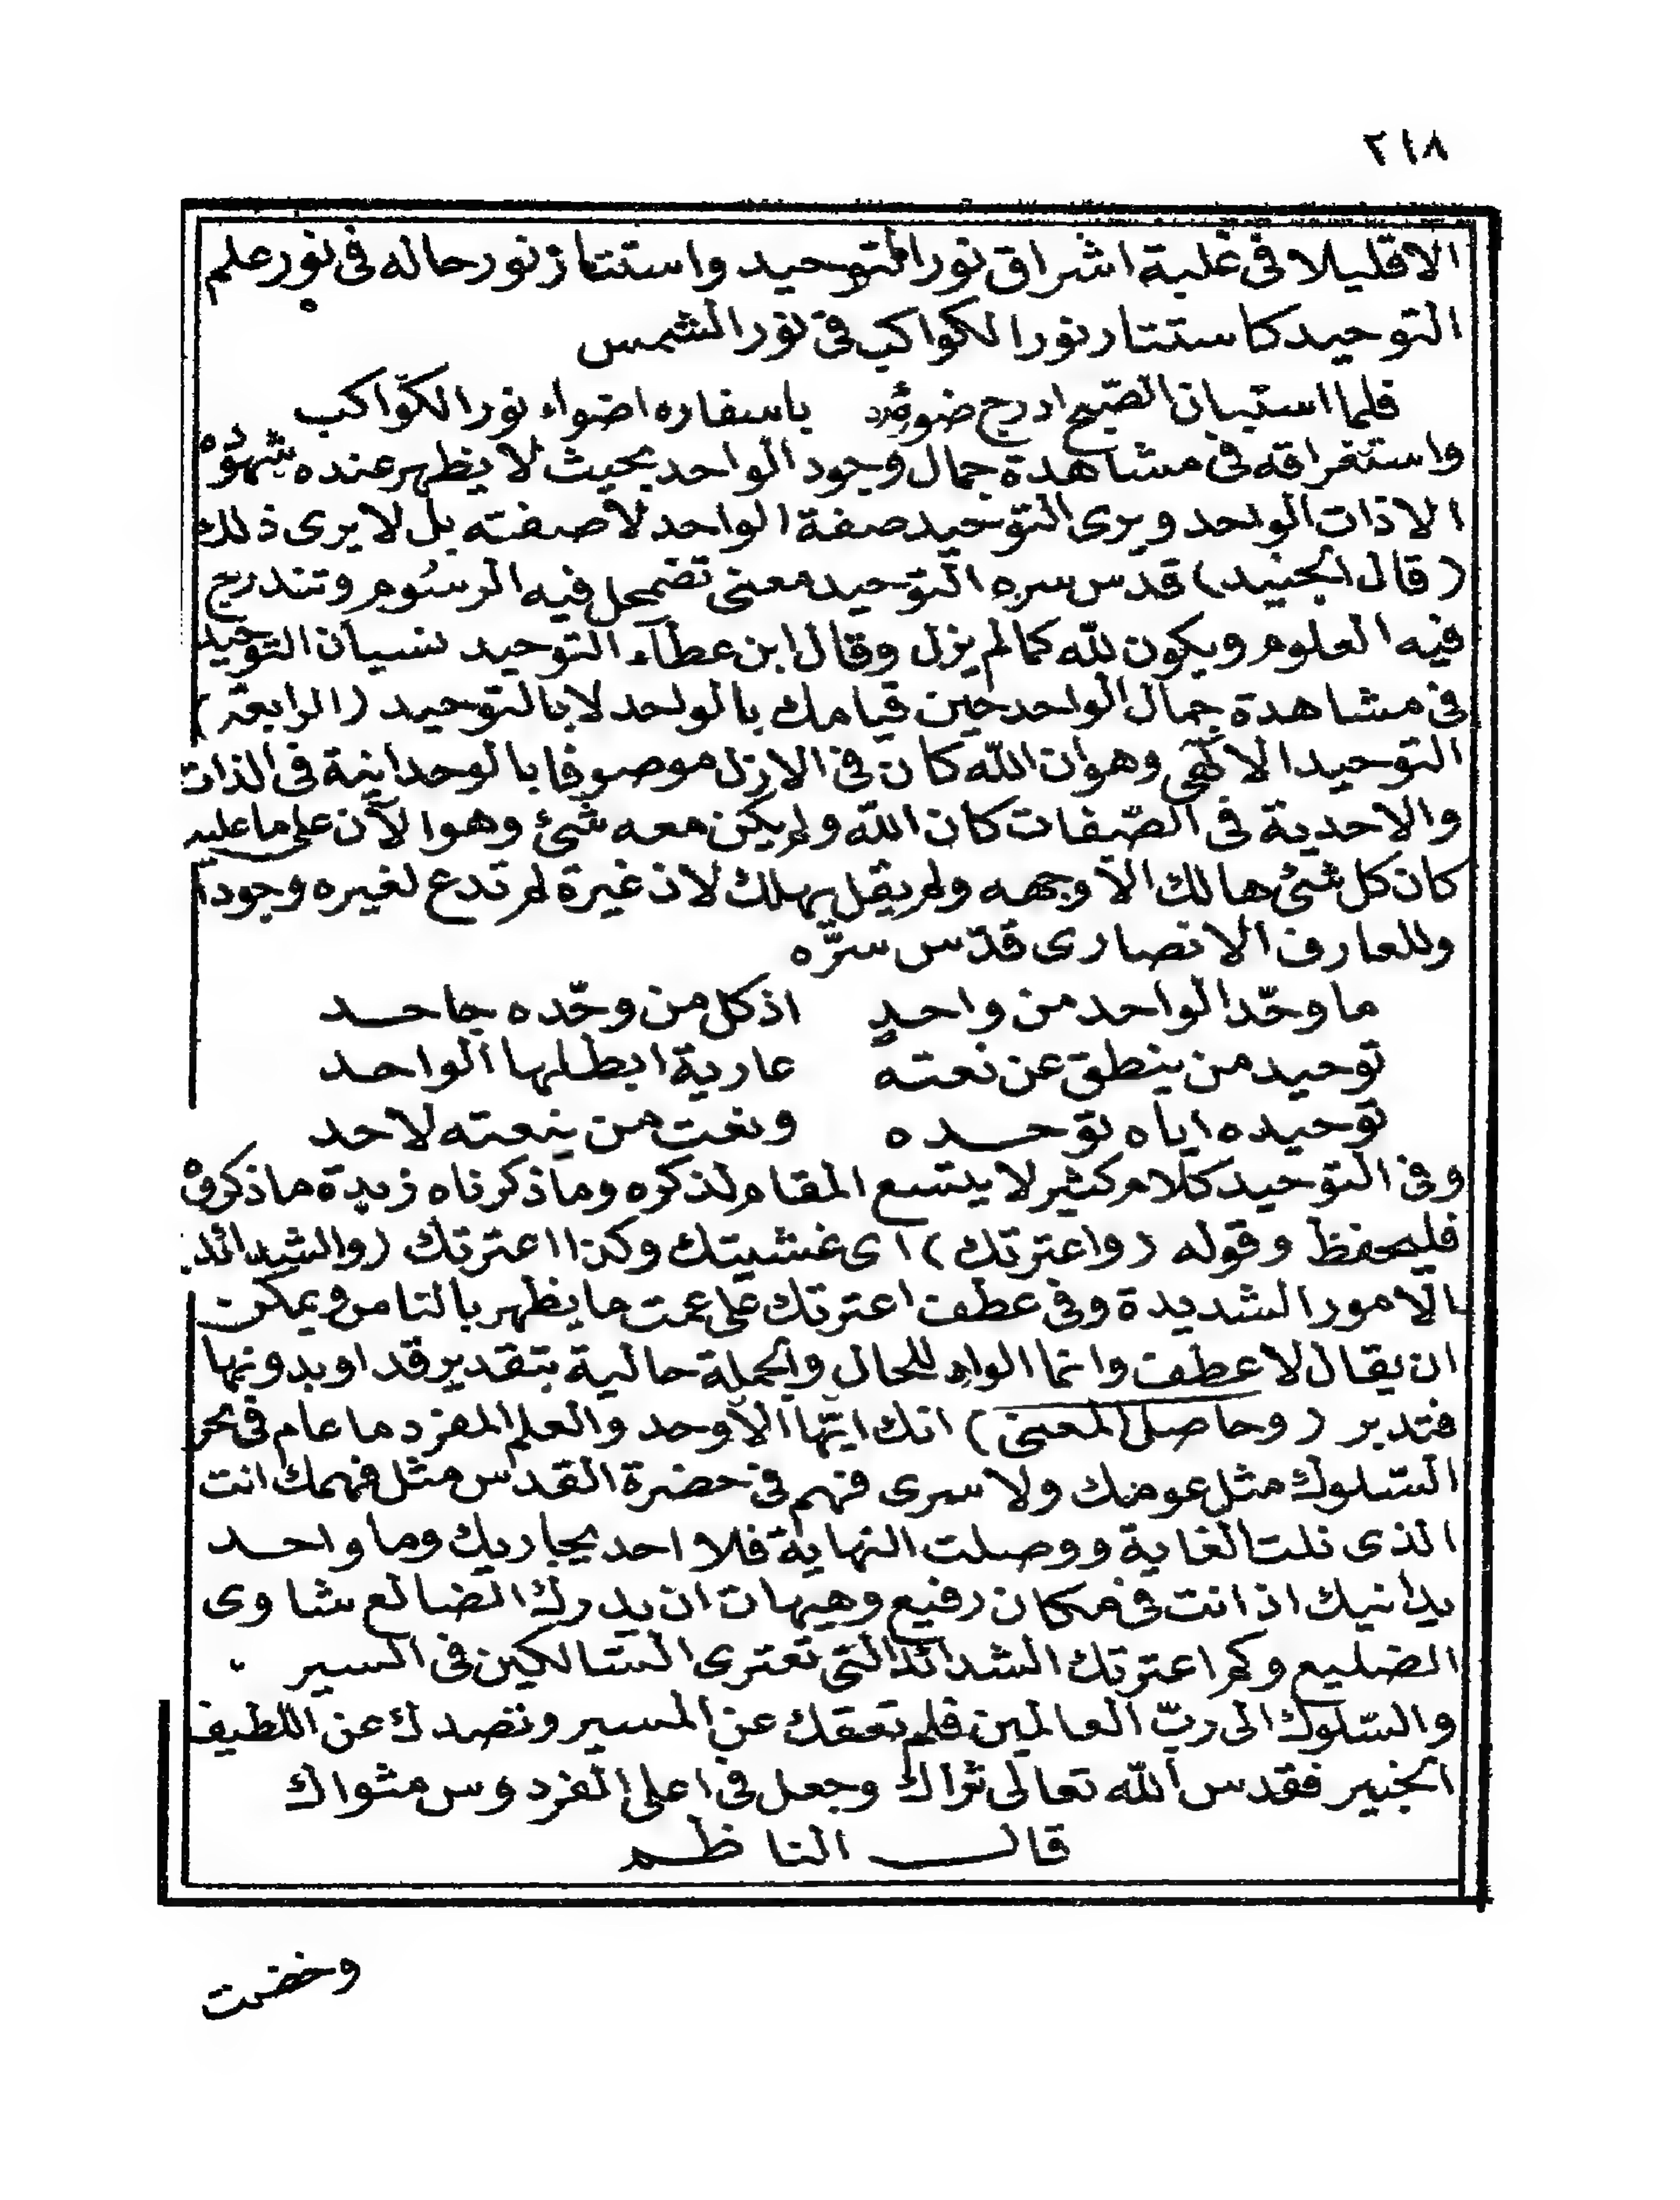 ٢١٨
الاقليلا فى غلبة اشراق نور التوحيد واستتار نور حاله فى نور علم
التوحيد كاستتار نور الكواكب فى نور الشمس
فلما استبان الصّبح ادرج ضوئه باسفاره اضواء نور الكوّاكب
واستغراقه فى مشاهدة جمال وجود الواحد بحيث لا يظهر عنده شهوده
الاذات الواحد ويرى التوحيد صفة الواحد لاصفته بل لا يرى ذلك
(قال الجنيد) قدس سره التوحيد معنى تضمحل فيه الرسُوم وتندرج
فيه العلوم ويكون لله كمالم يزل وقال ابن عطآء التوحيد نسيان التوحيد
فى مشاهدة جمال الواحد حين قيامك بالواحد لا بالتوحيد (الرابعة)
التوحيد الالٓهى وهو ان الله كان فى الازل موصوفا بالوحدانية فى الذات
والاحدية فى الصّفات كان الله ولم يكن معه شئ وهو الآن على ما عليه
كان كل شئ هالك الّا وجهه ولم يقل يهلك لان غيرة لم تدع لغيره وجوداً
وللعارف الانصارى قدّس سرّه
ما وحّد الواحد من واحدٍ اذ كل من وحّده جاحـد
توحيد من ينطق عن نعته عارية ابطلها الواحـد
توحيده اياه توحـده ونعت من ينعته لاحد
وفى التوحيد كلام كثير لا يتسع المقام لذكره وما ذكرناه زبدة ما ذكروه
فليحفظ وقوله (واعترتك) اى غشيتك وكذا اعترتك (والشدائد)
الامور الشديدة وفى عطف اعترتك على عمت ما يظهر بالتامل ويمكن
ان يقال لا عطف وانما الواو للحال والجملة حالية بتقدير قد او بدونها
فتدبر (وحاصل المعنى) انك ايّها الأوحد والعلم المفرد ما عام فى بحر
السّلوك مثل عومك ولا سرى فهم فى حضرة القدس مثل فهمك انت
الذى نلت الغاية ووصلت النهاية فلا احد يجاريك وما واحـد
يدانيك اذ انت فى مكان رفيع وهيهات ان يدرك الضالع شاوى
الضليع وكم اعترتك الشدائد التى تعترى السّالكين فى السير
والسّلوك الى ربّ العالمين فلم تعقك عن المسير وتصدك عن اللطيف
الخبير فقدس الله تعالى ثراك وجعل فى اعلى الفردوس مثواك
قالـ الناظم
وخضت